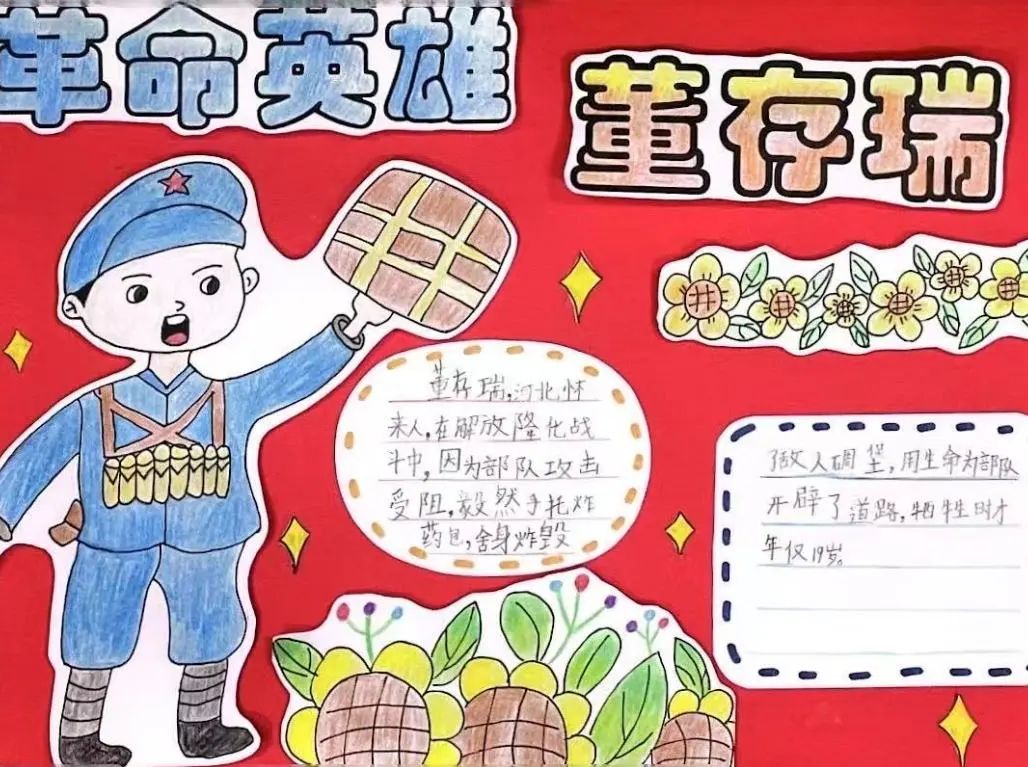 革命英雄
董存瑞
董存瑞,河北怀
来人,在解放隆化战
斗中,因为部队攻击
受阻,毅然手托炸
药包,舍身炸毁
了敌人碉堡,用生命为部队
开辟了道路,牺牲时才
年仅19岁。